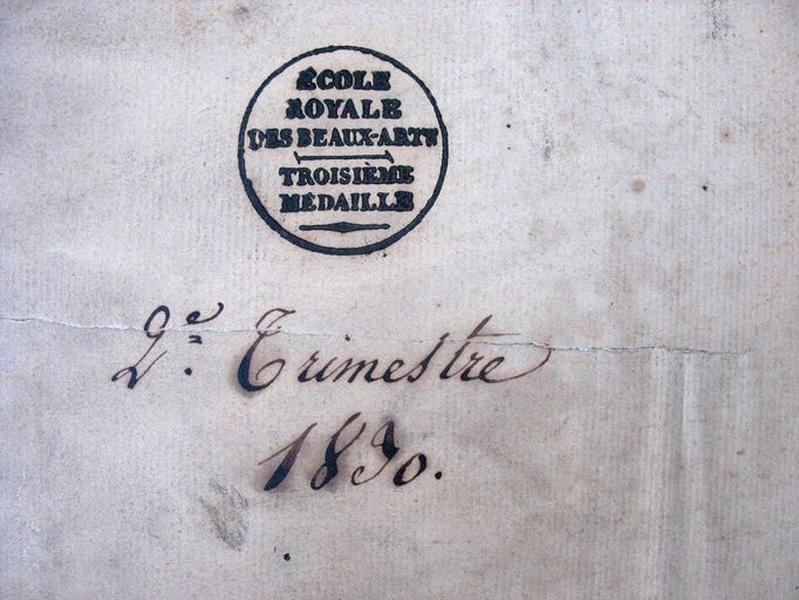 ÉCOLE
ROYALE
DES BEAUX-ARTS
TROISIÈME
MÉDAILLE
2e. Trimestre
1830.